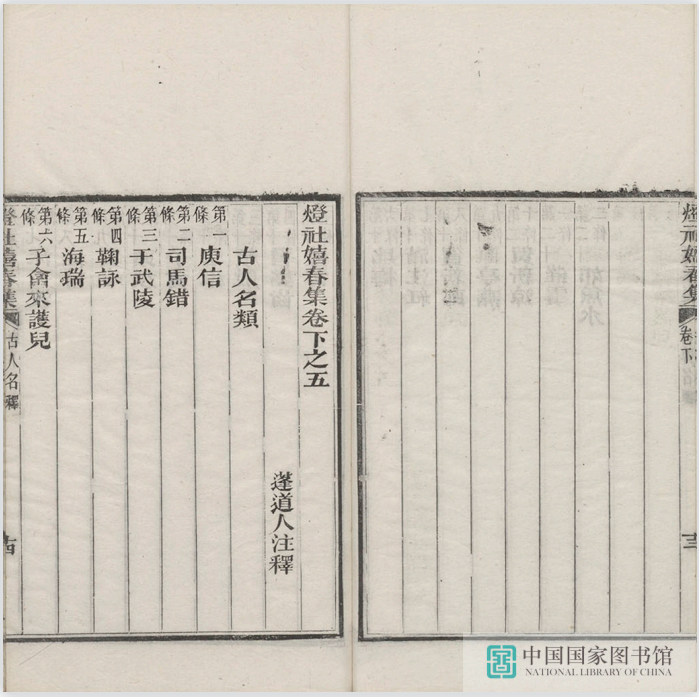 燈社嬉春集
卷下
十三
燈社嬉春集卷下之五
蘧道人注釋
古人名類
第一條 庾信
第二條 司馬錯
第三條 于武陵
第四條 鞠詠
第五條 海瑞
第六條 子會來護兒
燈社嬉春集
古人名釋
十四
中国国家图书馆
NATIONAL LIBRARY OF CHINA